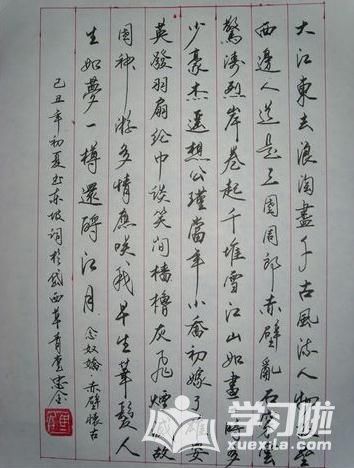 大江東去浪淘盡千古風流人物故壘
西邊人道是三國周郎赤壁亂石雲
驚濤烈岸卷起千堆雪江山如畫一時多
少豪杰遥想公瑾當年小喬初嫁了雄姿
英發羽扇綸巾談笑間檣櫓灰飛煙滅故
國神游多情應咲我早生華髮人
生如夢一樽還酹江月 念奴嬌 赤壁懷古
己丑年初夏书东坡詞於西草青堂忠全
学习啦
www.xuexila.com